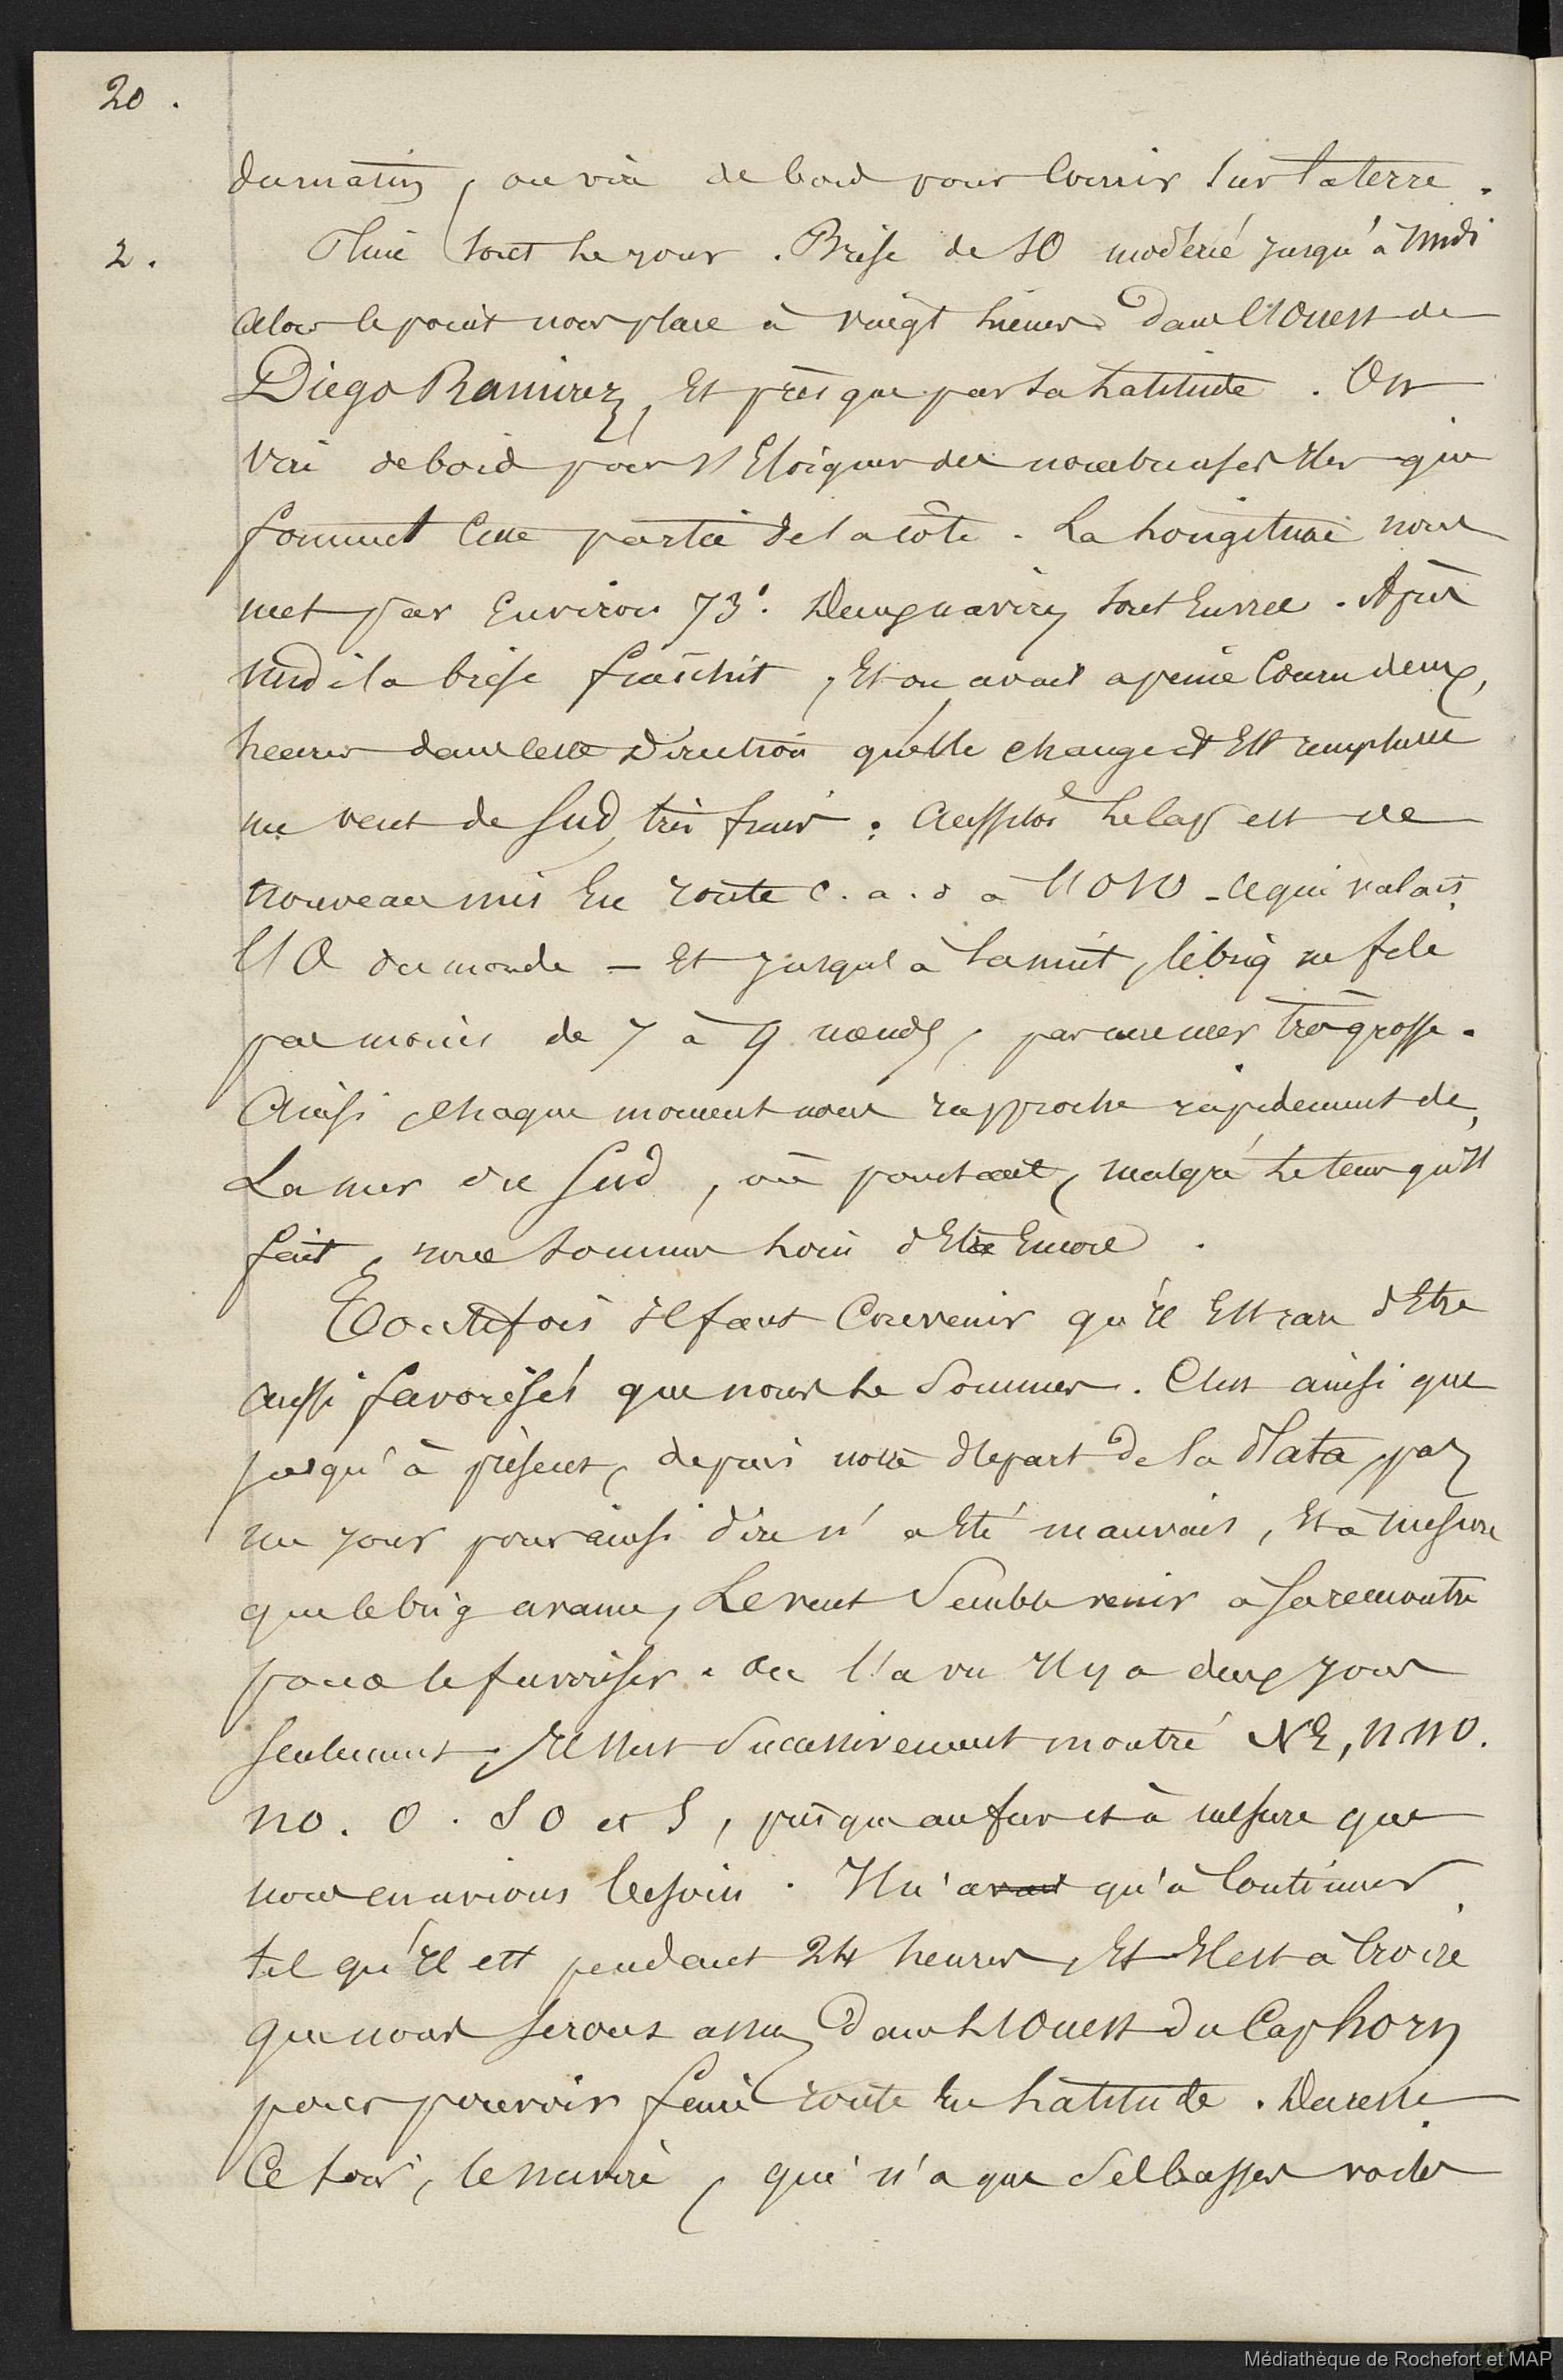 20.
du matin, on vire de bord pour courir sur la terre.
2. Pluie tout le jour. Brise de SO modéré jusqu'à midi
alors le point nous place à vingt lieues dans l'Ouest de
Diego Ramirez, Et presque par sa Latitude. On
vire de bord pour s'Eloigner des nombreuses Iles qui
forment Cette partie de la côte. La Longitude nous
met par Environ 73°. Deux navires sont En vue. Après
midi la brise fraîchit, Et on avait a peine Couru deux
heures dans cette Direction qu'elle change Et Est remplacée
un vent de Sud très frais. Aussitôt Le Cap est de
nouveau mis En route c.a.d à l'ONO - ce qui valait
l'O du monde - Et jusqu'à La nuit, le brig ne file
pas moins de 7 à 9 nœuds, par une mer très grosse.
Ainsi chaque moment nous rapproche rapidement de
La mer du Sud, où pourtant, malgré Le temps qu'Il
fait, nous Sommes Loin d'Etre Encore.
Toutefois Il faut Convenir qu'Il Est rare d'Etre
aussi favorisés que nous Le Sommes. C'est ainsi que
jusqu'à présent, depuis notre départ de la Plata, pas
un jour pour ainsi dire n'a Eté mauvais, Et à mesure
que le brig avance, Le vent Semble venir à Sa rencontre
pour le favoriser. On l'a vu Il y a deux jours
Seulement; Il s'est Successivement montré NE, NNO.
NO. O. SO et S, presque au fur et à mesure que
nous en avions besoin. Il n'avait qu'à Continuer
tel qu'Il est pendant 24 heures, Et Il est à Croire
que nous Serons assez dans L'Ouest du Cap horn
pour pouvoir faire route En Latitude. De reste
Ce soir, le navire, qui n'a que Ses basses voiles
Médiathèque de Rochefort et MAP